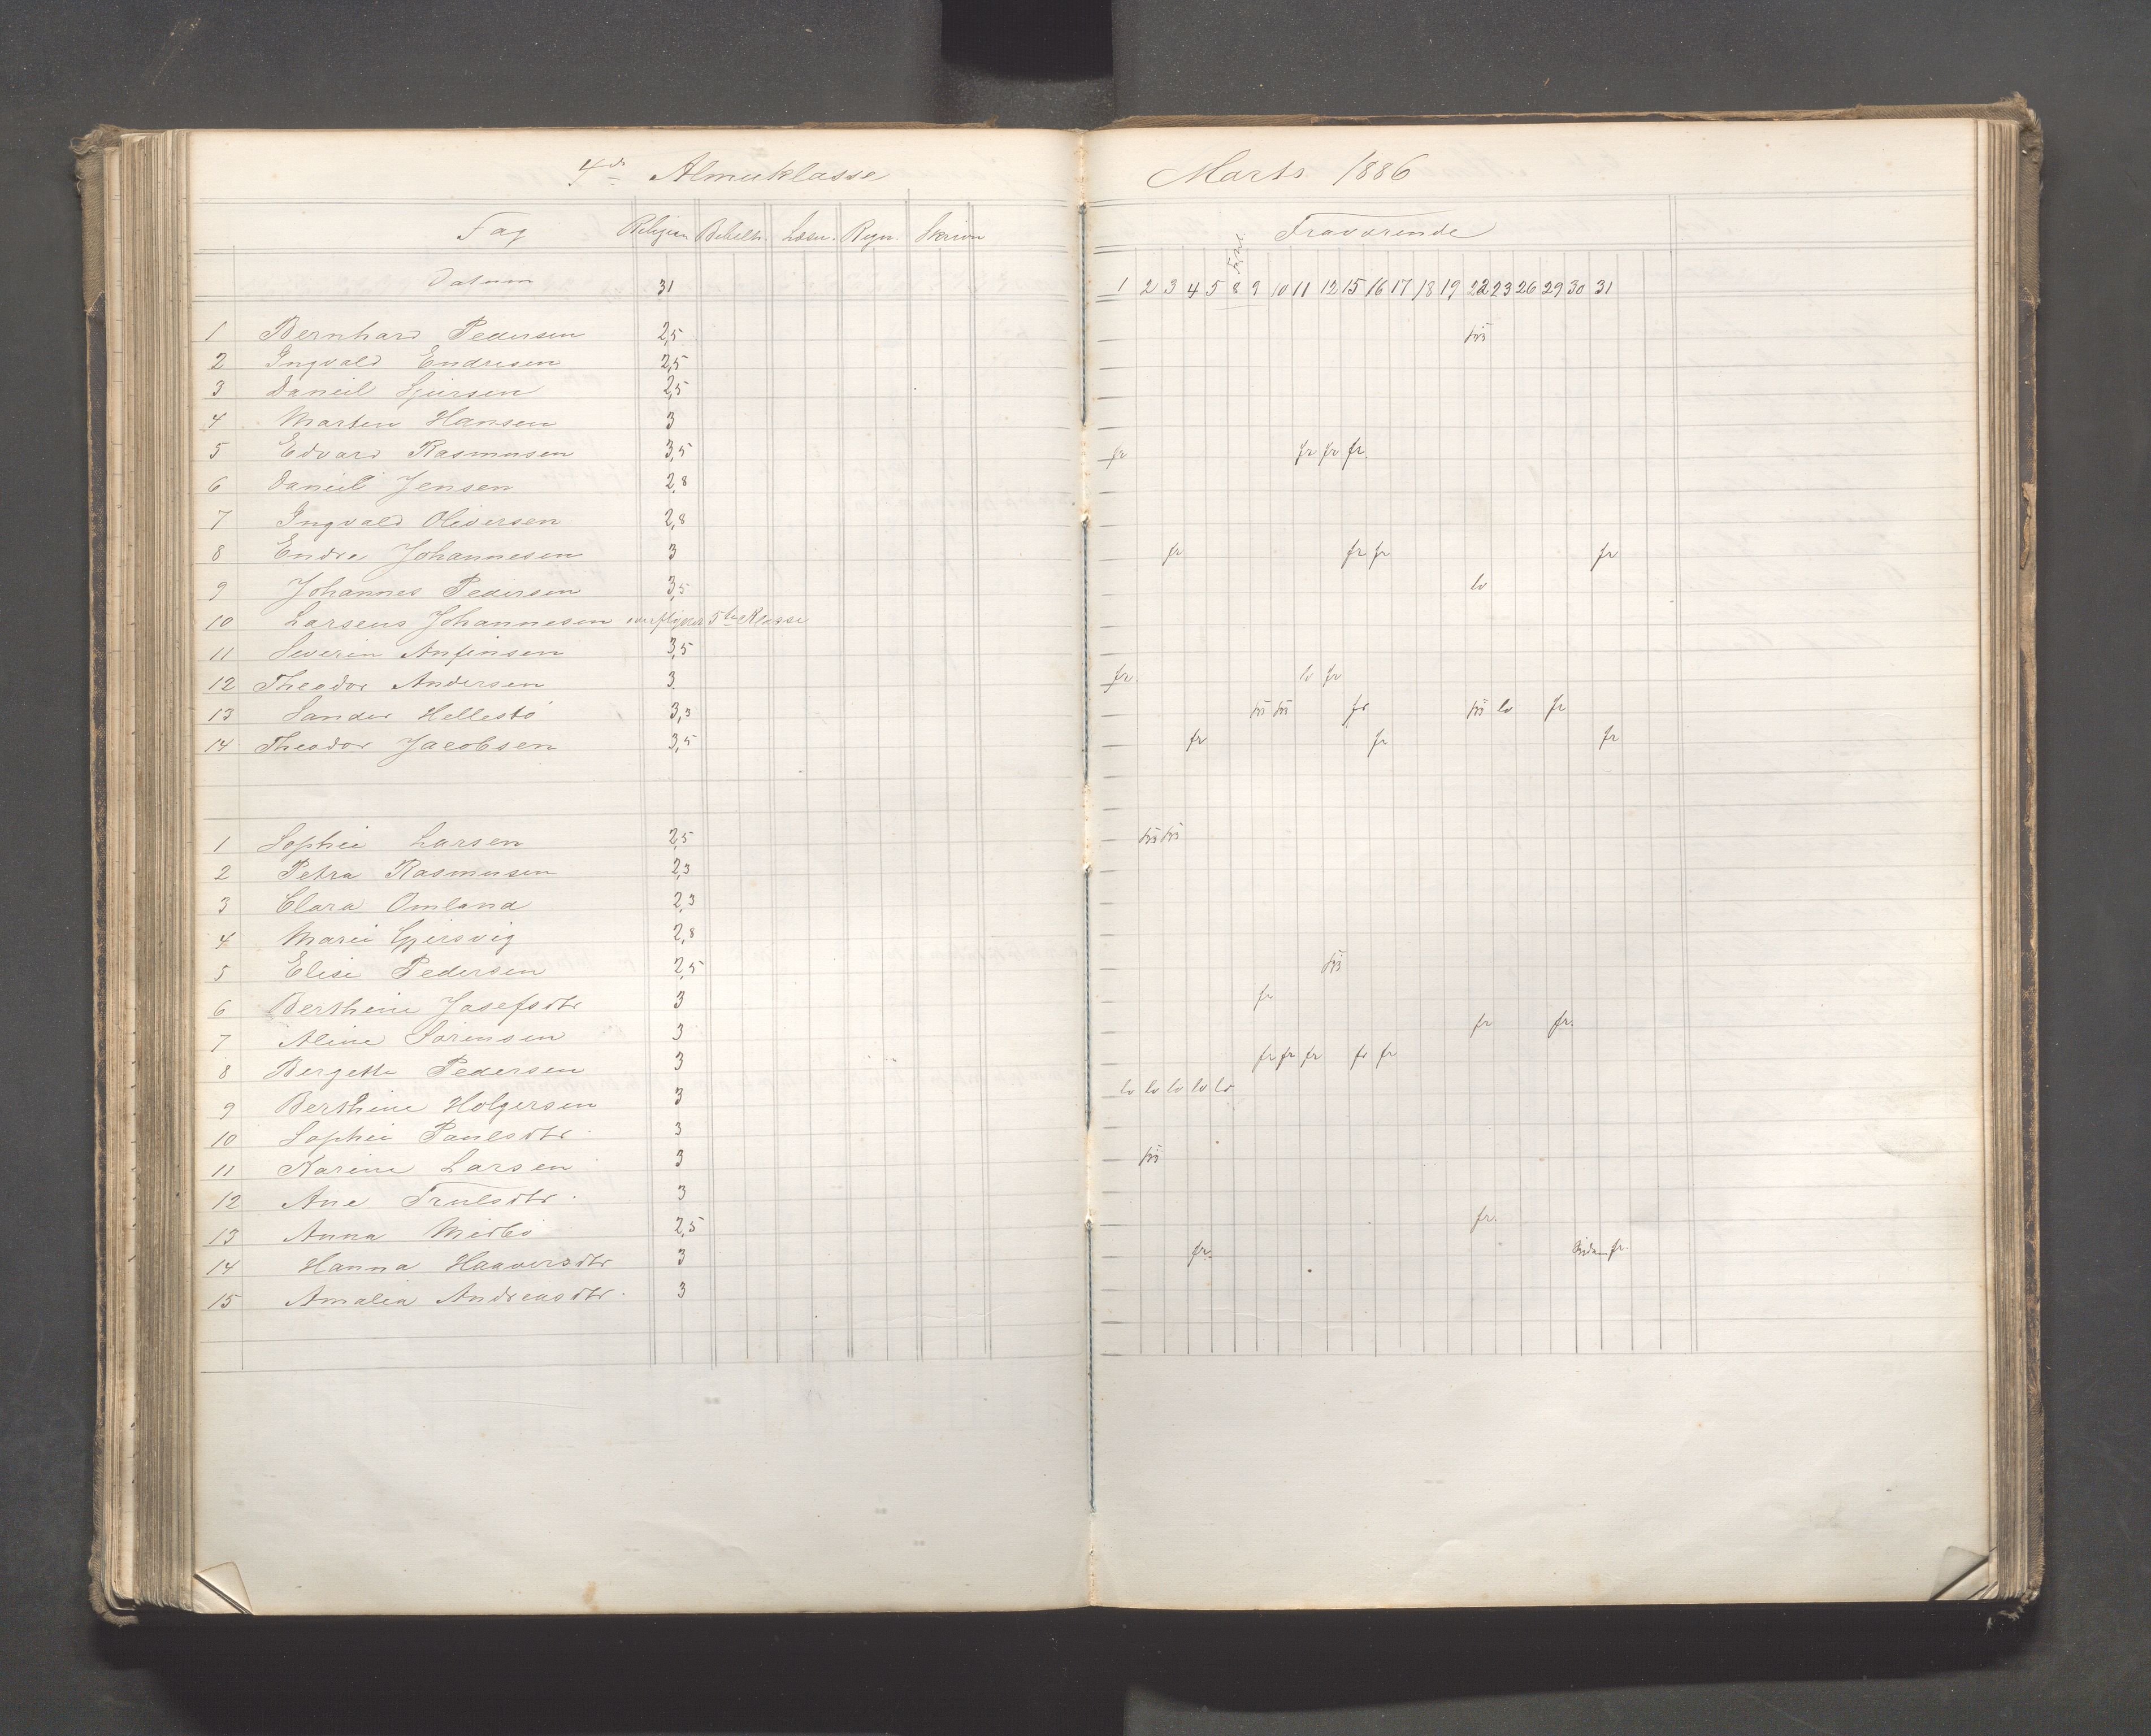 4de Almueklasse
Fag Religion Bibelh. Læsn. Regn. Skrivn
Datum 31
1 Bernhard Pedersen 2,5
2 Ingvald Endresen 2,5
3 Daniel Sjursen 2,5
4 Martin Hansen 3
5 Edvard Rasmusen 3,5
6 Daniel Jensen 2,8
7 Ingvald Oliversen 2,8
8 Endre Johannesen 3
9 Johannes Pedersen 3,5
10 Larseus Johannesen 5te Klasse
11 Severin Anfinsen 3,5
12 Theodor Andersen 3
13 Sander Hellestö 3,3
14 Theodor Jacobsen 3,5
1 Sophie Larsen 2,5
2 Petra Rasmusen 2,3
3 Clara Omland 2,3
4 Marie Gjersvig 2,8
5 Elise Pedersen 2,5
6 Berthine Josefsdtr 3
7 Aline Sörensen 3
8 Bergette Pedersen 3
9 Berthine Holgersen 3
10 Sophie Paulsdtr 3
11 Karine Larsen 3
12 Ane Trulsdtr. 3
13 Anna Midbö 2,5
14 Hanna Haaversdtr 3
15 Amalia Andreasdtr. 3
Marts 1886
Fraværende
1 2 3 4 5 8 9 10 11 12 15 16 17 18 19 22 23 26 29 30 31
fr fr fr fr
fr fr fr fr
lo
fr. lo fr
fr lo fr
fr fr fr
fr
fr fr.
fr fr fr fr fr
lo lo lo lo lo
fr.
fr. fr.